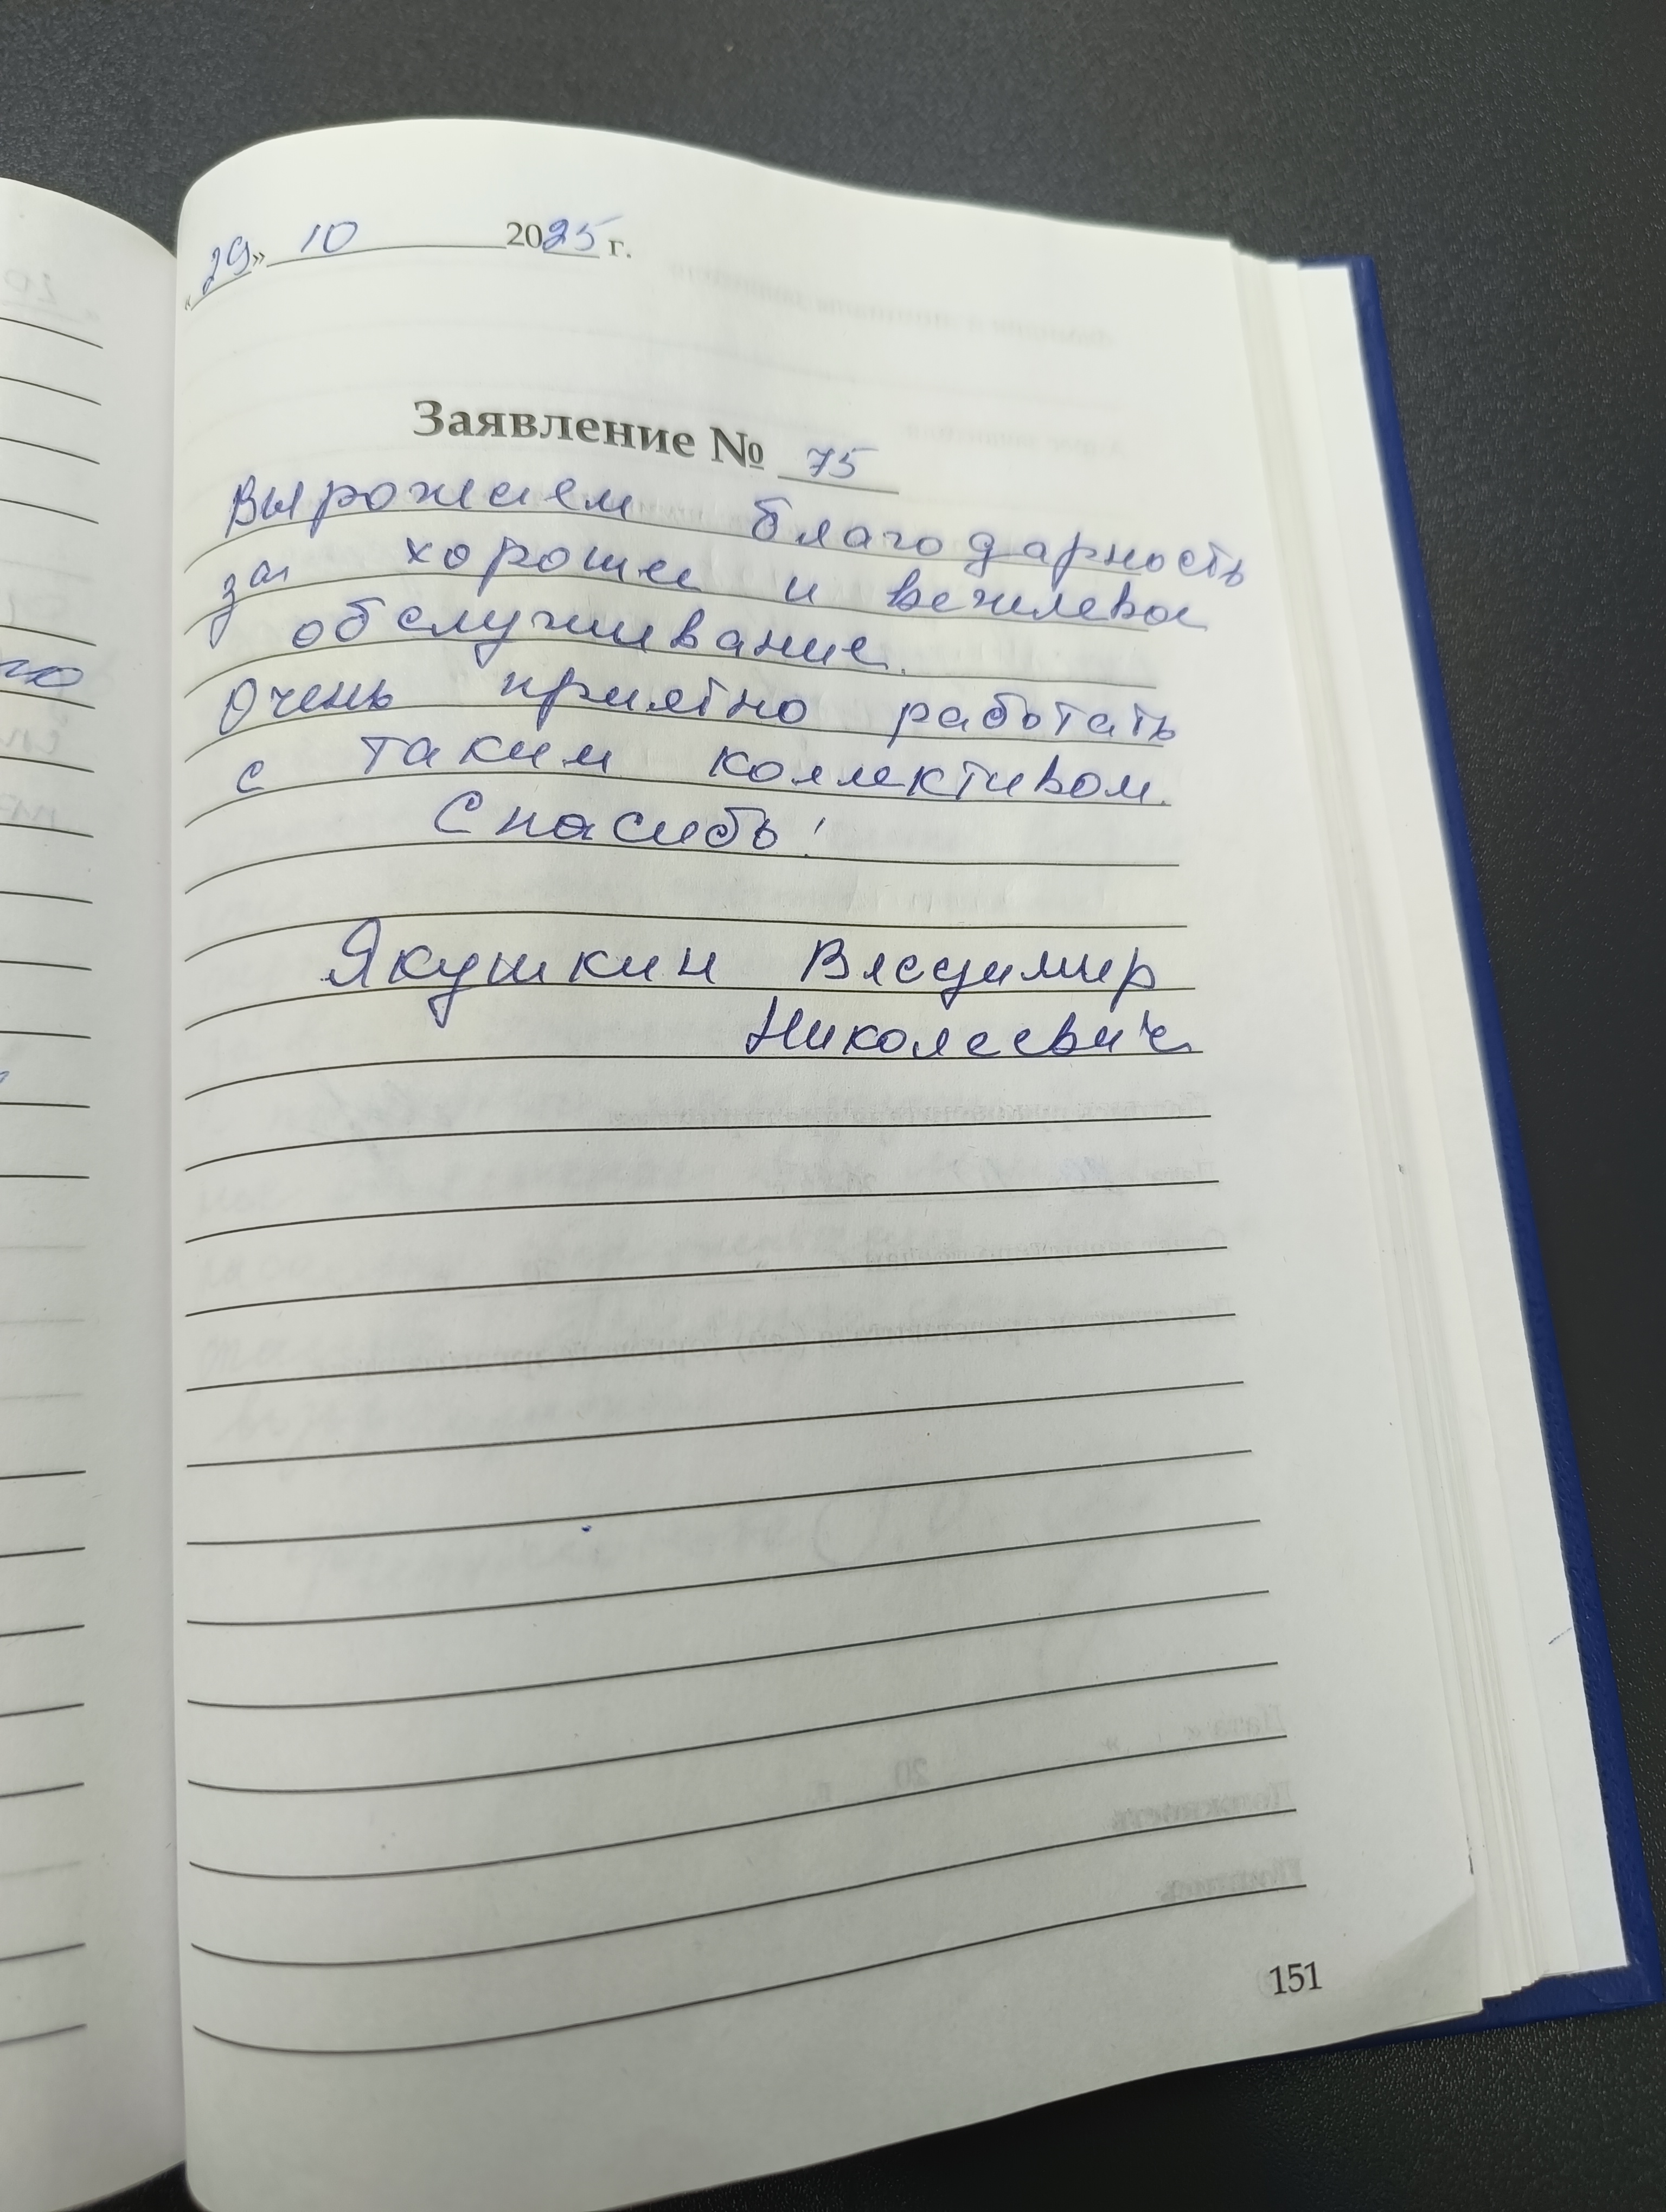 «29» 10 2025 г.
Заявление № 75
Вырожаем благодарность
за хорошее и вежлевое
обслуживание.
Очень приятно работать
с таким коллективом.
Спасибо!
Якушкин Владимир
Николаевич
151